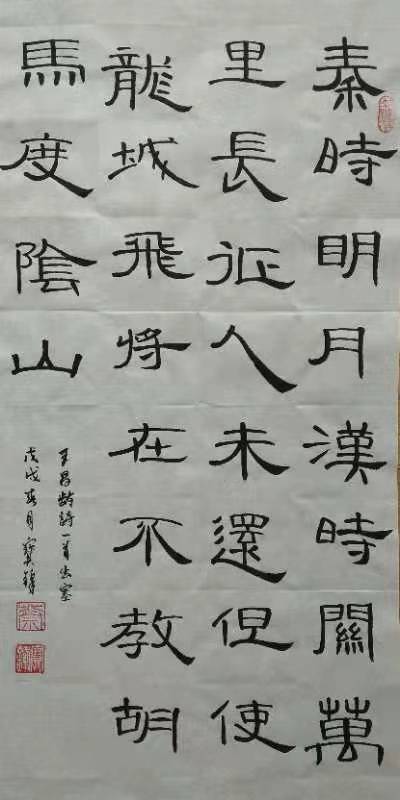 秦時明月漢時關萬
里長征人未還但使
龍城飛將在不教胡
馬度陰山
王昌龄詩一首出塞
戊戌春月